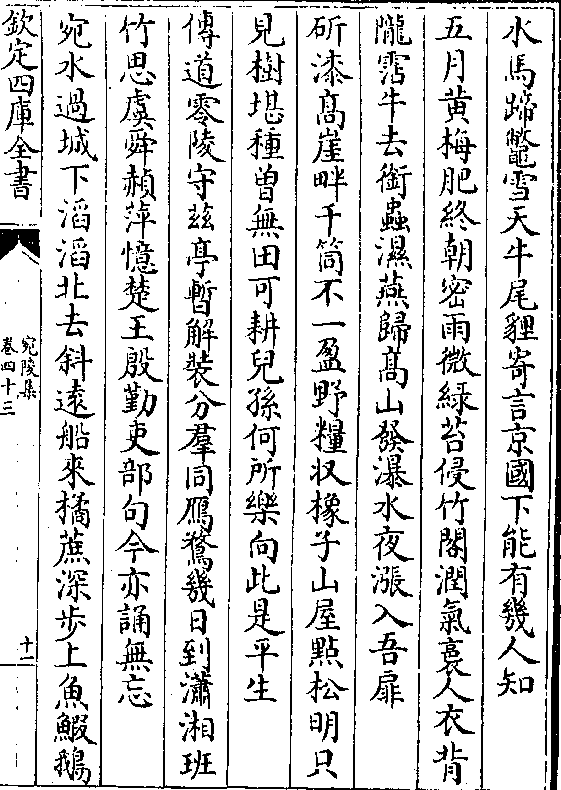 水馬蹄鼈雪天牛尾貍寄言京國下能有幾人知
五月黄梅肥終朝密雨微綠苔侵竹閣潤氣裛人衣背
隴霑牛去銜蟲濕燕歸髙山發瀑水夜漲入吾扉
斫漆髙崖畔千筒不一盈野糧收橡子山屋點松明只
見樹堪種曽無田可耕兒孫何所樂向此是平生
傳道零陵守兹亭暫解裝分羣同鴈鶩幾日到瀟湘班
竹思虞舜赬萍憶楚王殷勤吏部句今亦誦無忘
宛水過城下滔滔北去斜逺船來橘蔗深步上魚鰕鵝
欽定四庫全書
宛陵集
卷四十三
十一